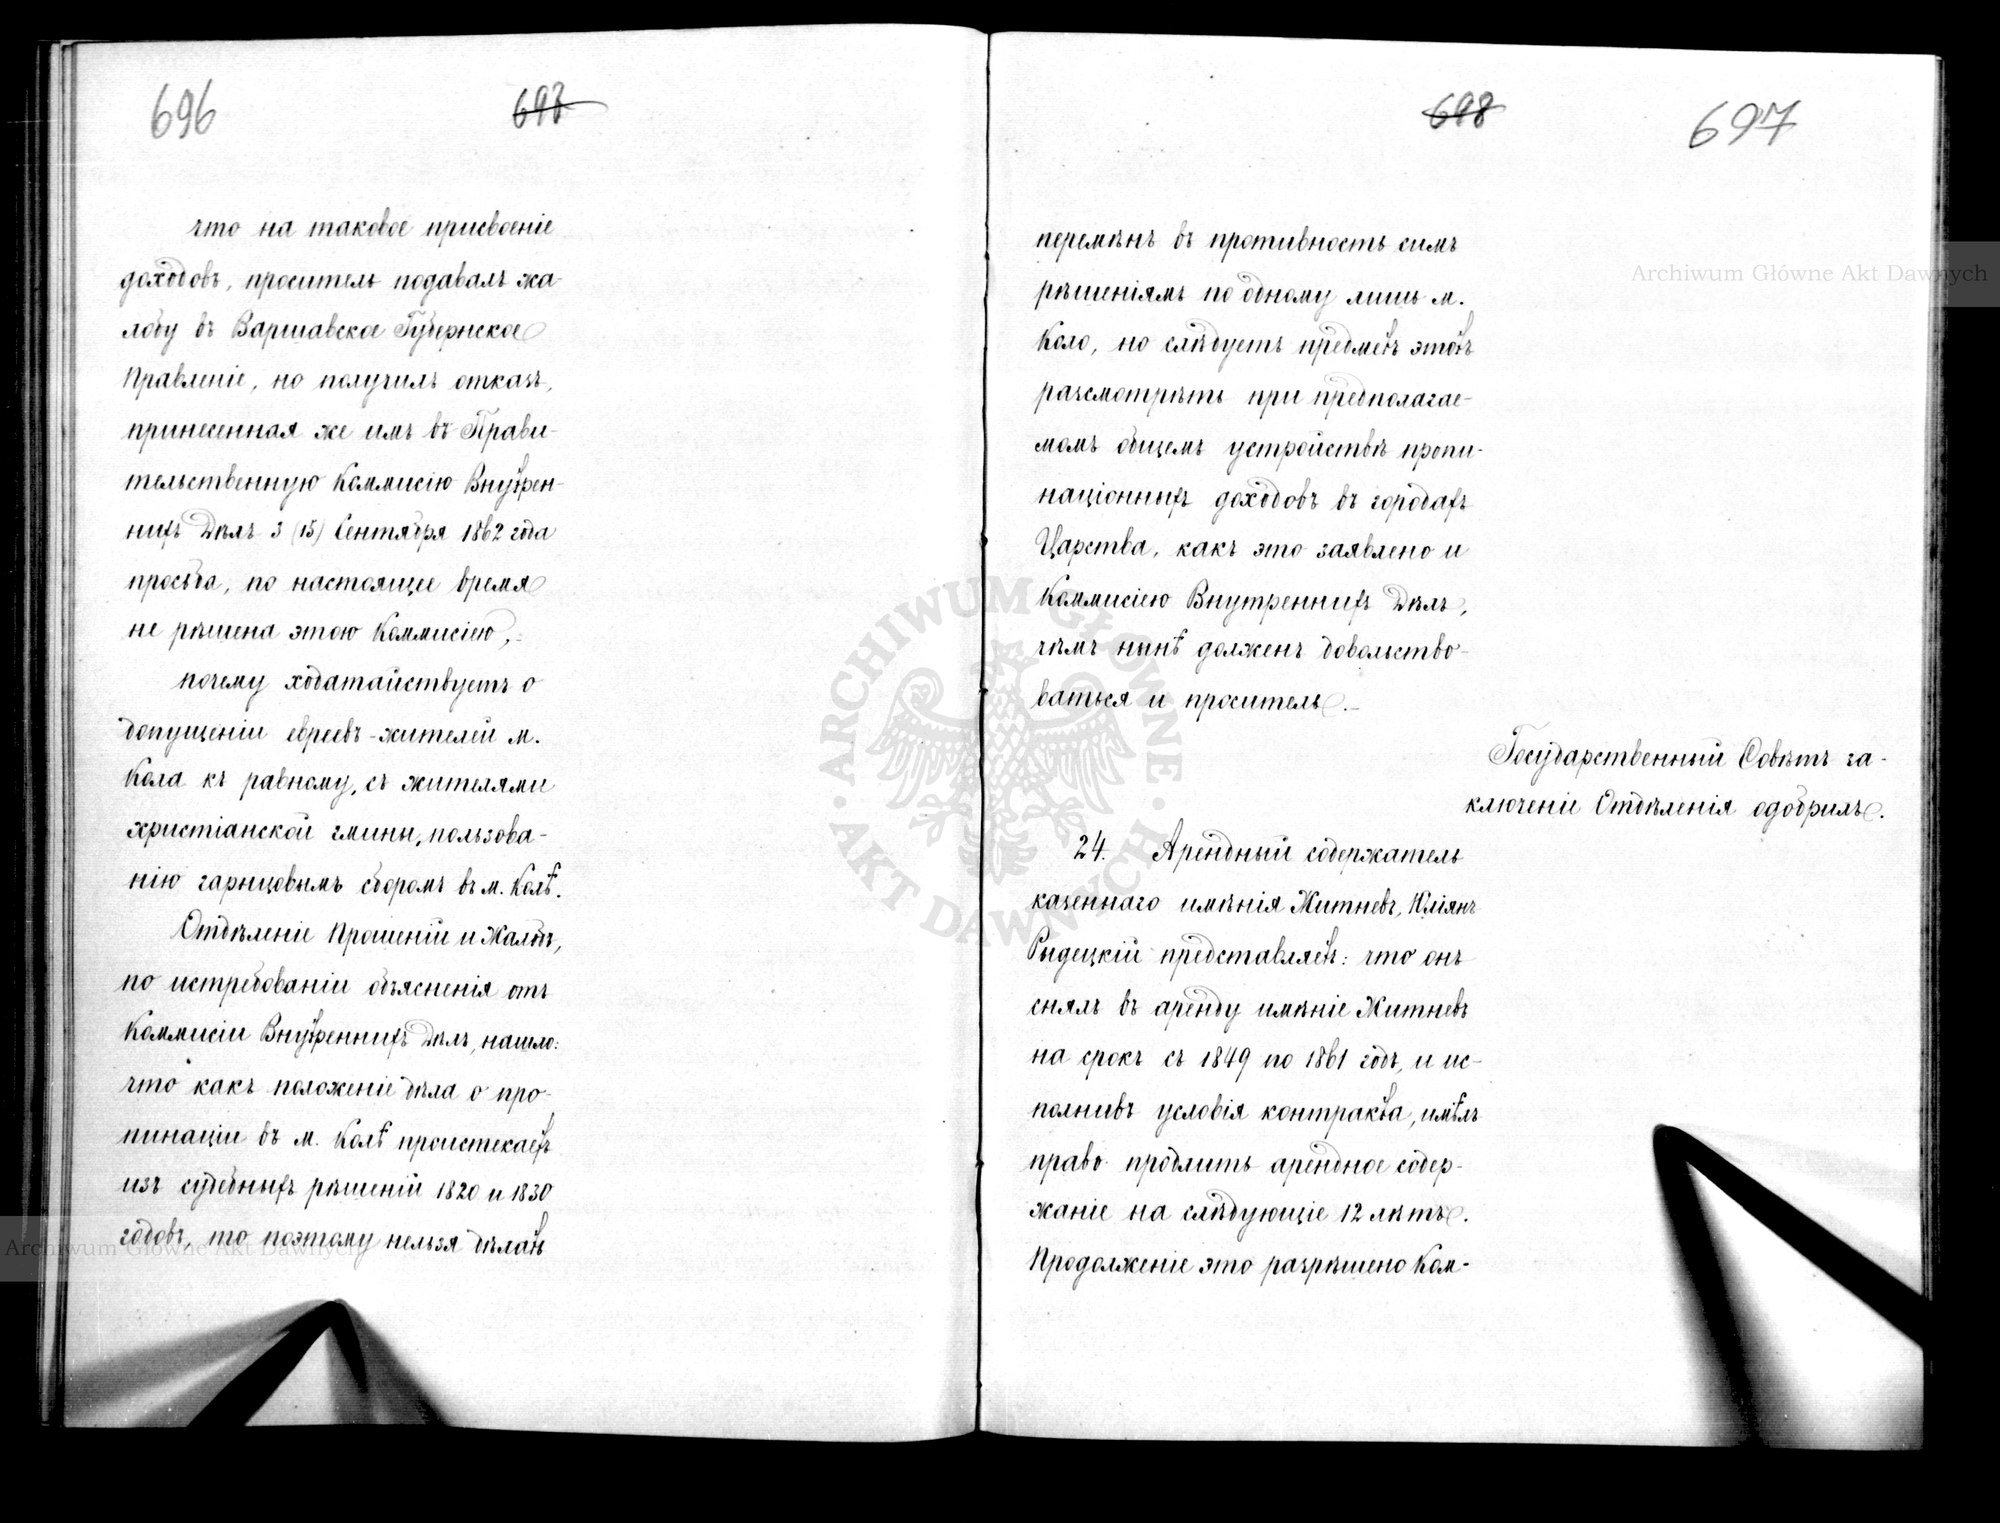 696
698
что на таковое присвоеніе
доходовъ, проситель подавалъ жа-
лобу въ Варшавское Губернское
Правленіе, но получилъ отказъ,
принесенная же имъ въ Прави-
тельственную Коммисію Внутрен-
нихъ Дѣлъ 3 (15) Сентября 1862 года
просьба, по настоящее время
не рѣшена этою Коммисіею,
почему ходатайствуетъ о
допущеніи евреевъ-жителей м.
Кола къ равному, съ жителями
христіанской гмины, пользова-
нію гарнцовымъ сборомъ въ м. Колѣ.
Отдѣленіе Прошеній и Жалобъ,
по истребованіи объясненія отъ
Коммисіи Внутреннихъ Дѣлъ, нашло:
что какъ положеніе дѣла о про-
пинаціи въ м. Колѣ проистекаетъ
изъ судебныхъ рѣшеній 1820 и 1830
годовъ, то поэтому нельзя дѣлать
698
697
перемѣнъ въ противность симъ
рѣшеніямъ по одному лишь м.
Коло, но слѣдуетъ предметъ этотъ
разсмотрѣть при предполагае-
момъ общемъ устройствѣ пропи-
націонныхъ доходовъ въ городахъ
Царства, какъ это заявлено и
Коммисіею Внутреннихъ Дѣлъ,
чѣмъ нынѣ долженъ довольство-
ваться и проситель.
Государственный Совѣтъ за-
ключеніе Отдѣленія одобрилъ.
24. Арендный содержатель
казеннаго имѣнія Житневъ, Юліянъ
Рыдецкій представляетъ: что онъ
снялъ въ аренду имѣніе Житневъ
на срокъ съ 1849 по 1861 годъ, и ис-
полнивъ условія контракта, имѣлъ
право продлить арендное содер-
жаніе на слѣдующіе 12 лѣтъ.
Продолженіе это разрѣшено Ком-
Archiwum Główne Akt Dawnych
Archiwum Główne Akt Dawnych
ARCHIWUM GŁÓWNE
AKT DAWNYCH